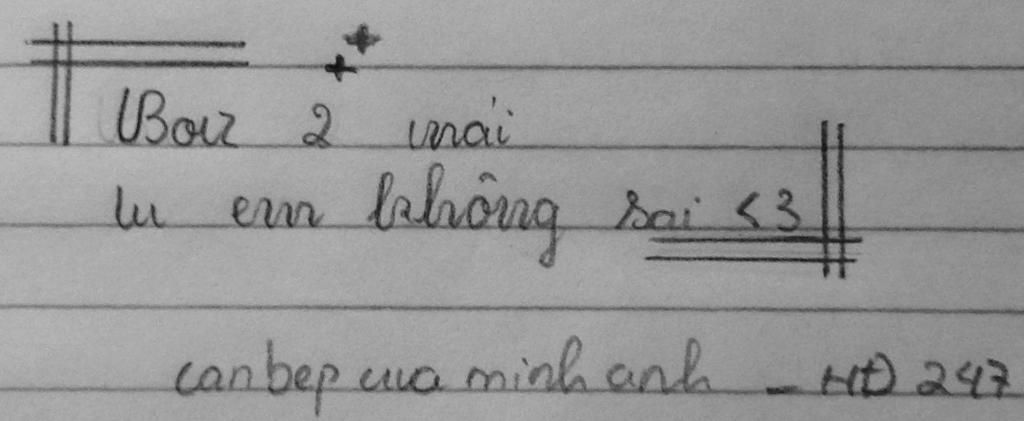 Boiz 2 mái
lu em không sai <3
canbep cua minh anh - HĐ 247